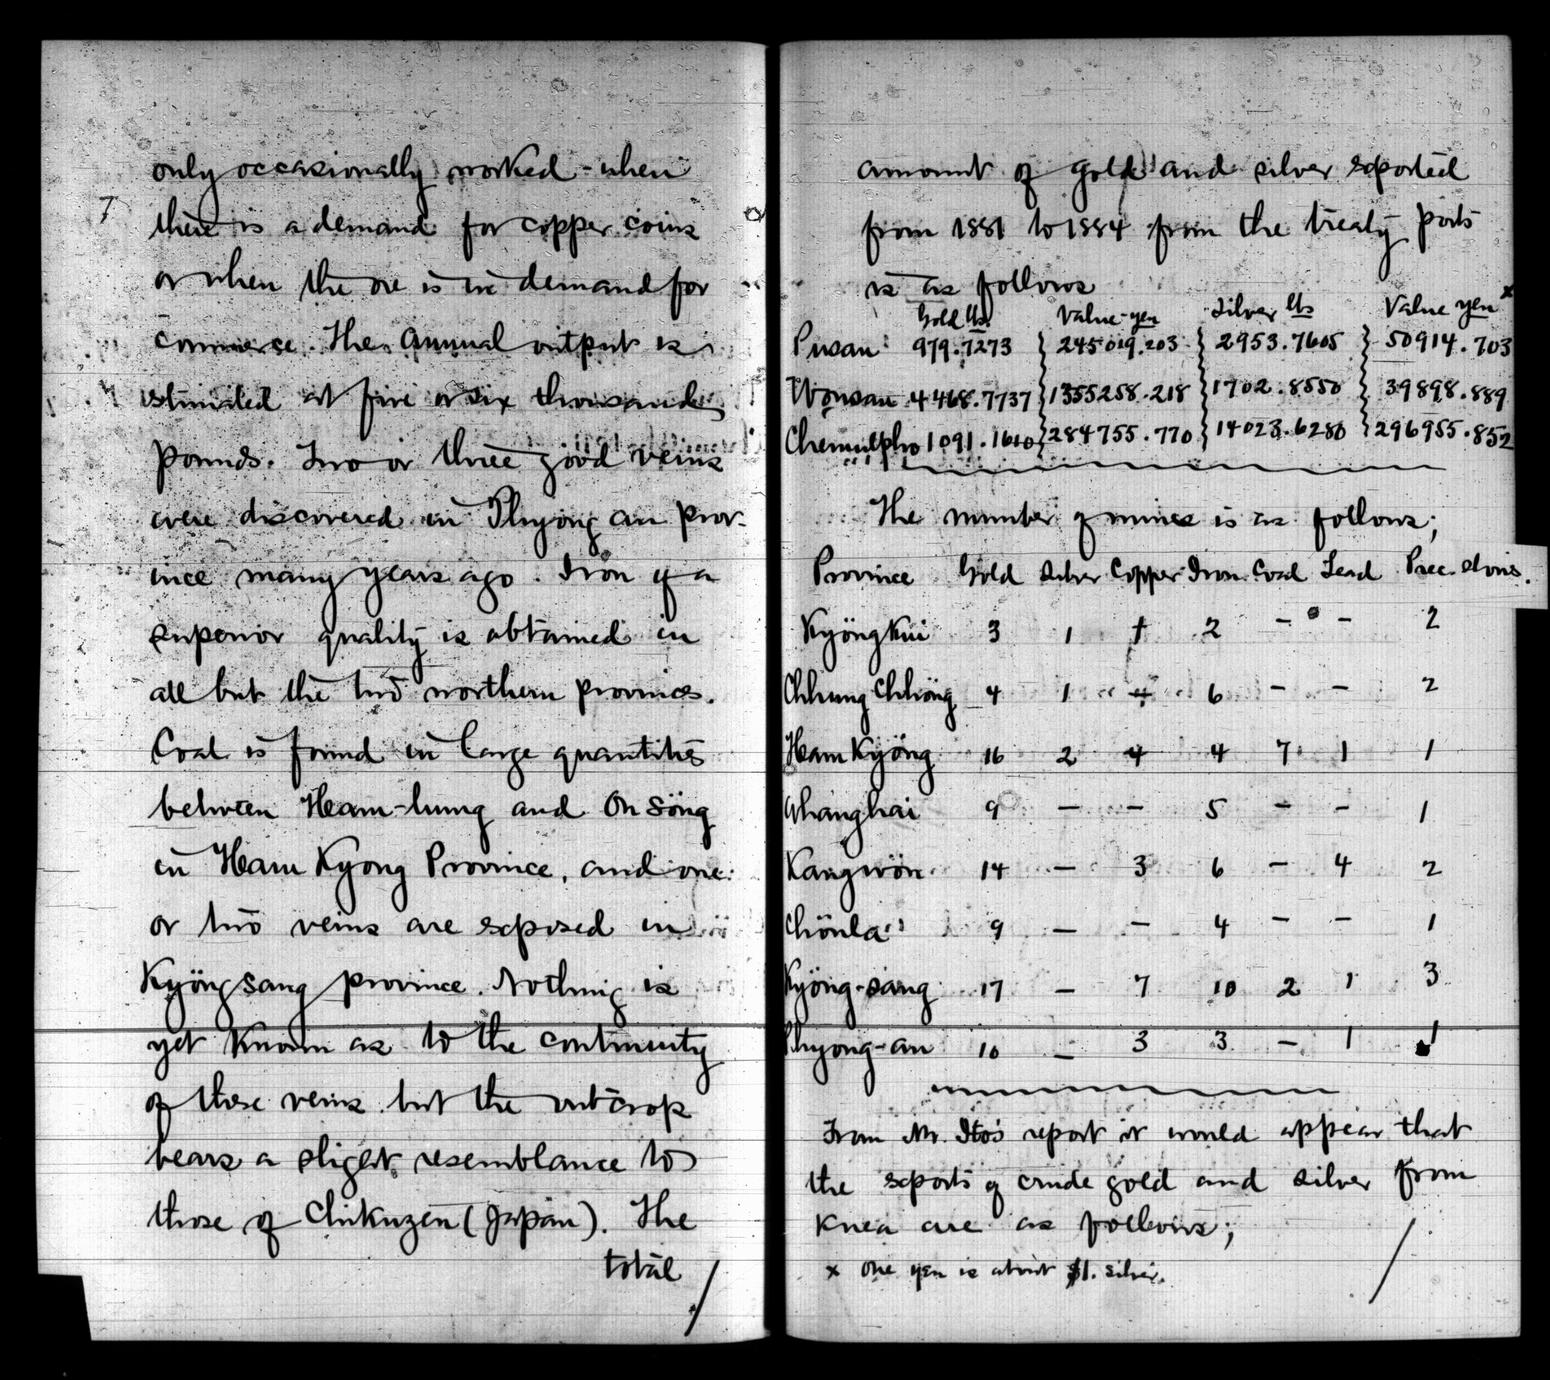 only occasionally worked - when
7
there is a demand for copper coins
or when the ore is in demand for
commerce. The annual output is
estimated at five or six thousand
pounds. Two or three good veins
were discovered in Phyong an prov-
ince many years ago. Iron of a
superior quality is obtained in
all but the two northern provinces.
Coal is found in large quantities
between Ham-hung and On Söng
in Ham Kyong Province, and one
or two veins are exposed in
Kyöng sang province. Nothing is
yet known as to the continuity
of these veins but the outcrop
bears a slight resemblance to
those of Chikuzen (Japan). The
total
amount of gold and silver exported
from 1881 to 1884 from the treaty ports
is as follows
Gold lbs. Value-yen Silver lbs Value yen x
Pusan 979.7273 } 245019.203 } 2953.7605 } 50914.703
Wonsan 4468.7737 } 1355258.218 } 1702.8550 } 39898.889
Chemulpho 1091.1610 } 284755.770 } 14023.6280 } 296955.852
The number of mines is as follows;
Province Gold Silver Copper Iron Coal Lead Prec. stones.
Kyöng Kui 3 1 1 2 - - 2
Chhung Chhöng 4 1 4 6 - - 2
Ham Kyöng 16 2 4 4 7 1 1
Whanghai 9 - - 5 - - 1
Kangwön 14 - 3 6 - 4 2
Chönla 9 - - 4 - - 1
Kyöng-sang 17 - 7 10 2 1 3
Phyong-an 10 - 3 3 - 1 1
From Mr. Ito's report it would appear that
the exports of crude gold and silver from
Korea are as follows;
x one yen is about $1. silver.